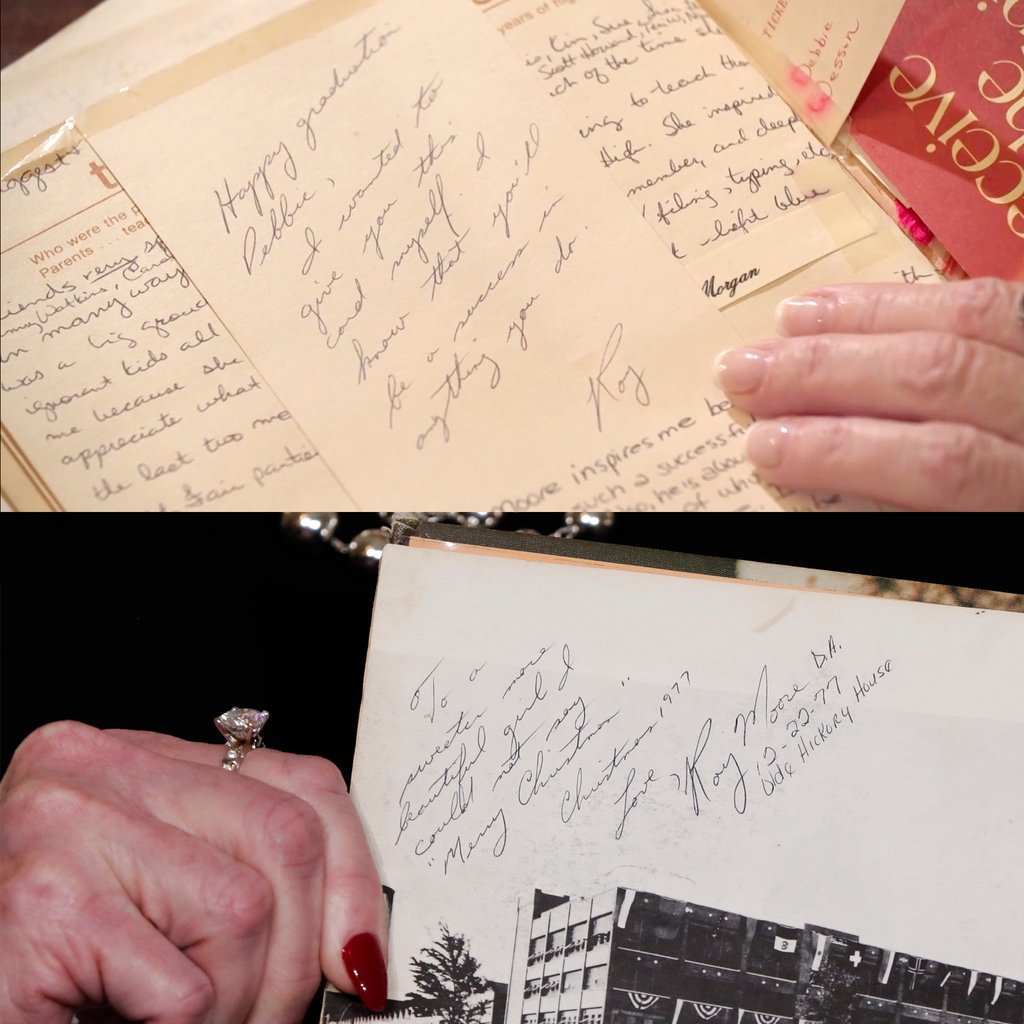 Happy graduation
Debbie,
I wanted to
give you this
card myself. I
know that you'll
be a success in
anything you do.
Roy
years of hig
is, Kim, Sue
Scott Howard,
ich of the time she
to teach the
ing
High. She inspired
member, and deep
(filing, typing, etc.
t light blue
Morgan
TICKE
Debbie
Wesson
ceive
he
Who were the p
Parents . . . tea
iends very sp
in many way
was a big group
ignorant kids all
me because she
appreciate what
the last two me
Fair partie
Moore inspires me be
such a successf
he's abou
of wh
To a
sweeter more
beautiful girl I
could not say
"Merry Christmas"
Christmas 1977
Love,
Roy Moore D.A.
12-22-77
Olde Hickory House